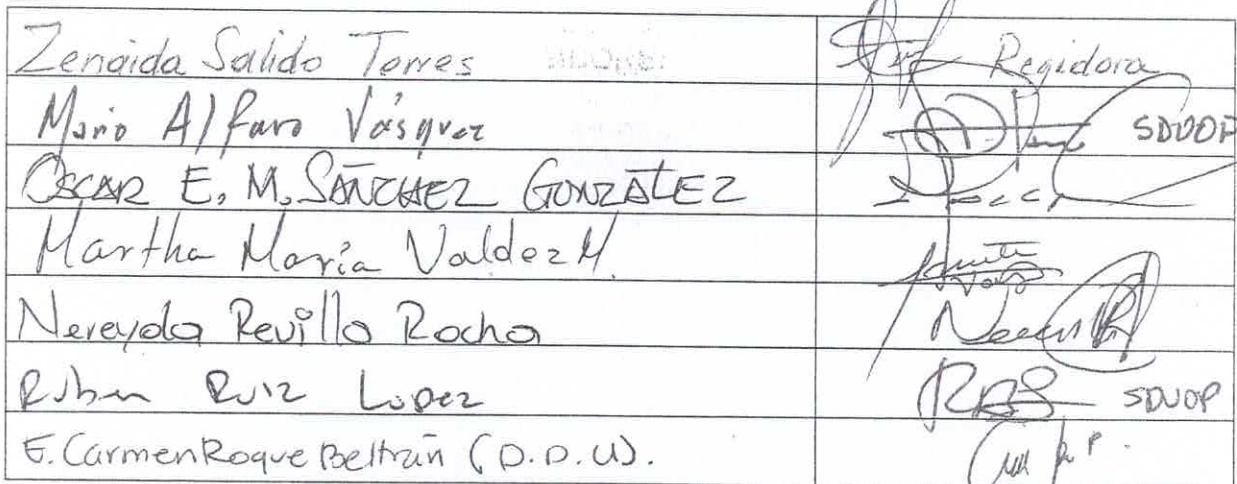 Zenaida Salido Torres Regidora
Mario Alfaro Vásquez SDUOP
OSCAR E. M. SÁNCHEZ GONZÁLEZ
Martha María Valdez M.
Nereyda Revillo Rocha
Ruben Ruiz Lopez SDUOP
E. Carmen Roque Beltrán (D.D.U).